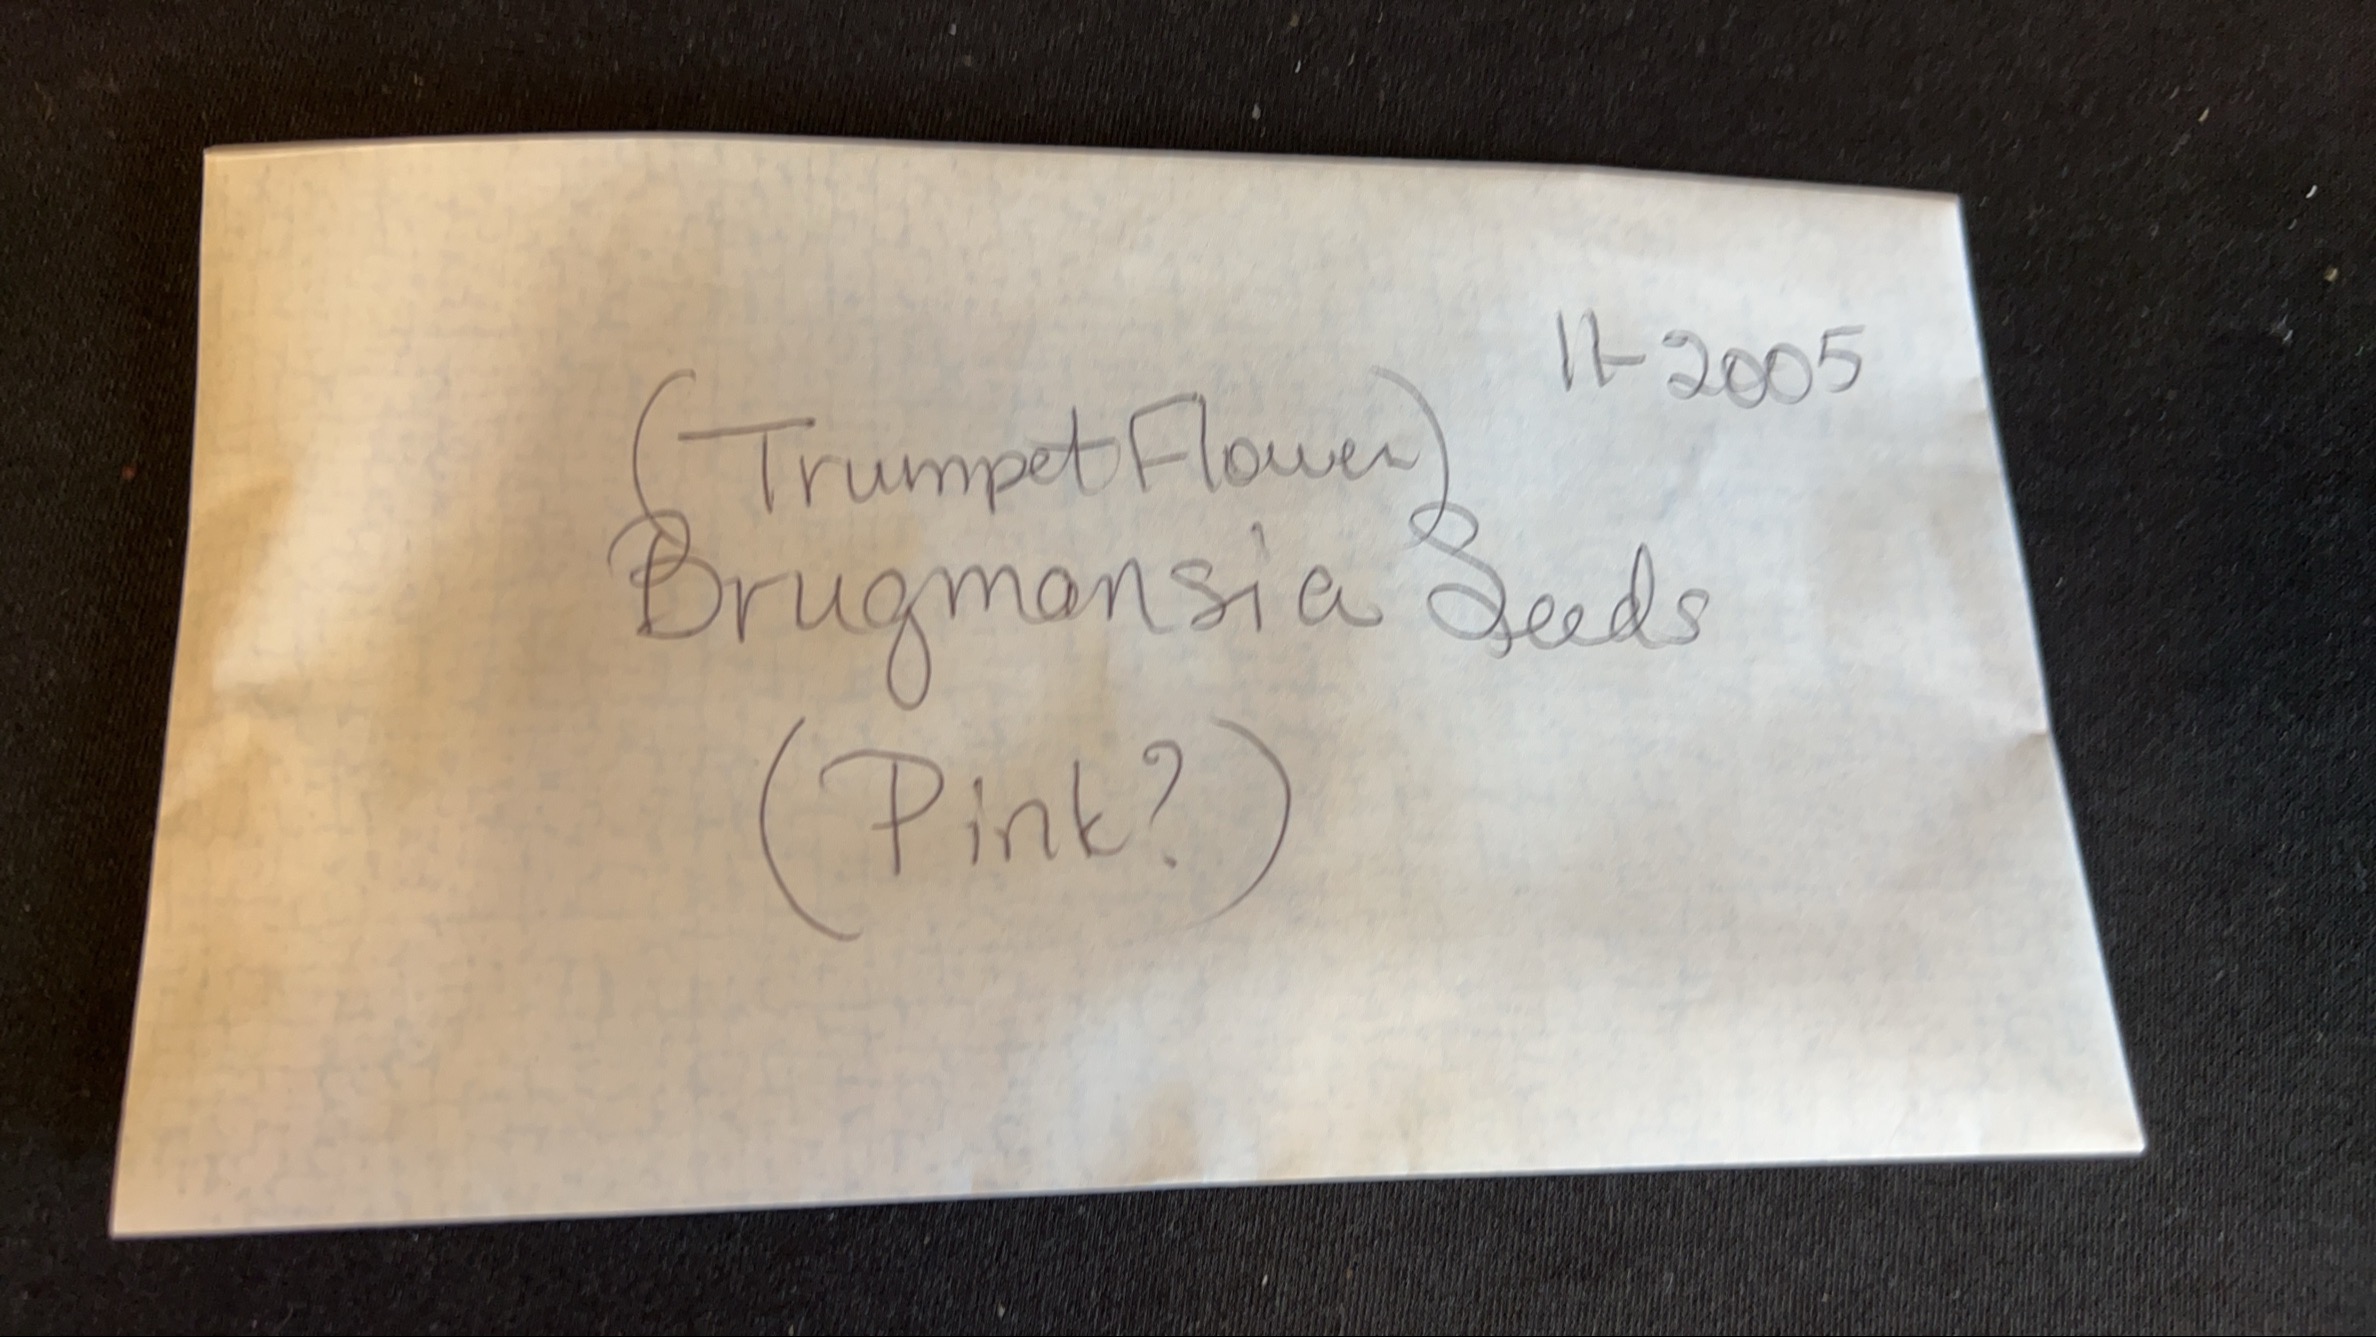 11-2005
(Trumpet Flower)
Brugmansia Seeds
(Pink?)